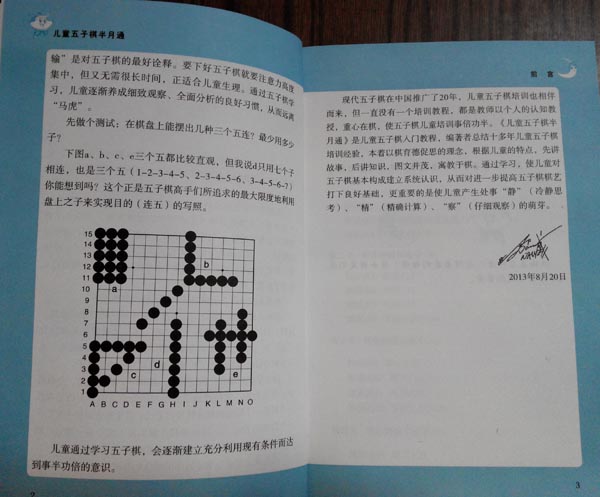 儿童五子棋半月通
输”是对五子棋的最好诠释。要下好五子棋就要注意力高度
集中，但又无需很长时间，正适合儿童生理。通过五子棋学
习，儿童逐渐养成细致观察、全面分析的良好习惯，从而远离
“马虎”。
先做个测试：在棋盘上能摆出几种三个五连？最少用多少
子？
下图a、b、c、e三个五都比较直观，但我说d只用七个子
相连，也是三个五（1-2-3-4-5、2-3-4-5-6、3-4-5-6-7）
你能想到吗？这个正是五子棋高手们所追求的最大限度地利用
盘上之子来实现目的（连五）的写照。
15
14
13
12
11
10
9
8
7
6
5
4
3
2
1
a
b
c
d
e
A B C D E F G H I J K L M N O
儿童通过学习五子棋，会逐渐建立充分利用现有条件而达
到事半功倍的意识。
2
前言
现代五子棋在中国推广了20年，儿童五子棋培训也相伴
而来，但一直没有一个培训教程，都是教师以个人的认知教
授，重心在棋，使五子棋儿童培训事倍功半。《儿童五子棋半
月通》是儿童五子棋入门教程，编著者总结十多年儿童五子棋
培训经验，本着以棋育德促思的理念，根据儿童的特点，先讲
故事，后讲知识，图文并茂，寓教于棋。通过学习，使儿童对
五子棋基本构成建立系统认识，从而对进一步提高五子棋棋艺
打下良好基础，更重要的是使儿童产生处事“静”（冷静思
考）、“精”（精确计算）、“察”（仔细观察）的萌芽。
2013年8月20日
3